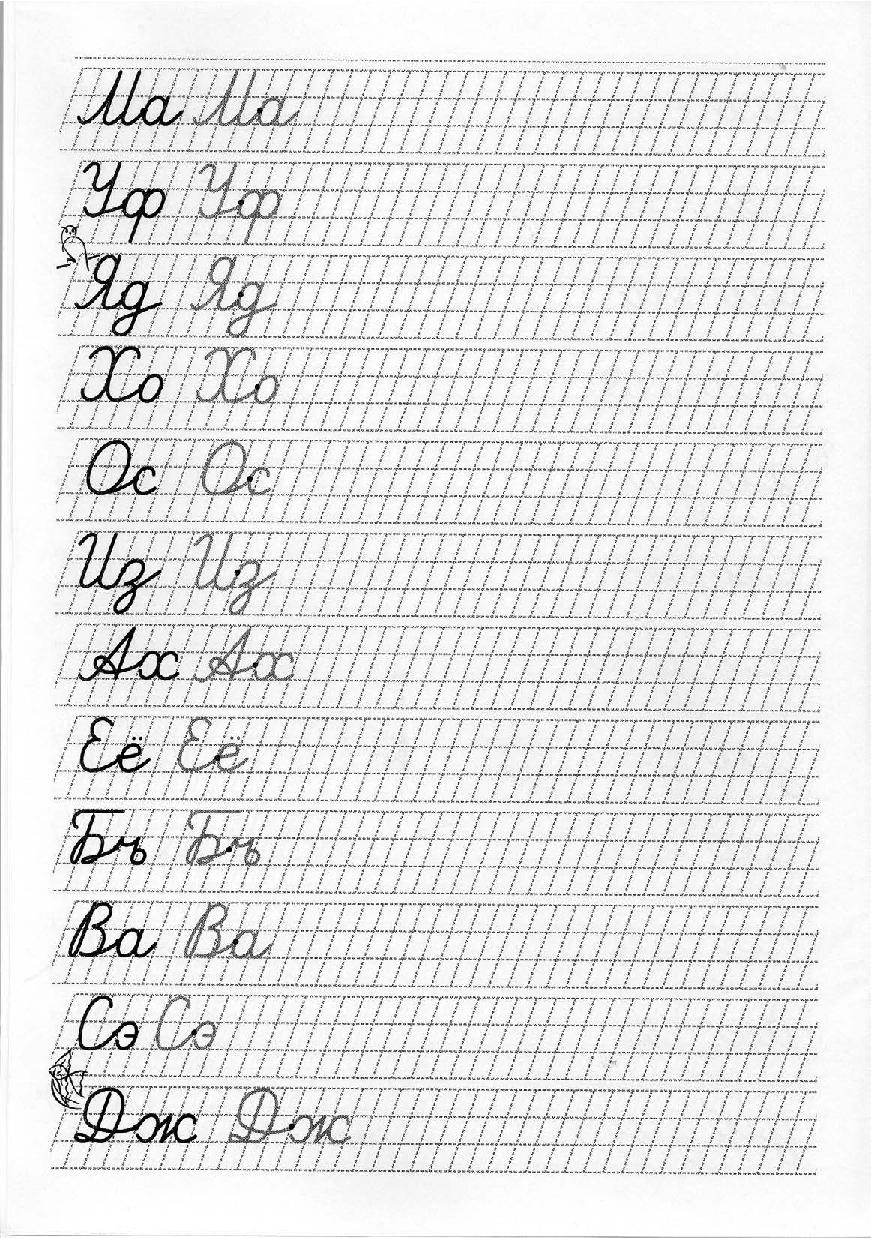 Ма Ма
Уф Уф
Яд Яд
Хо Хо
Ос Ос
Из Из
Ах Ах
Её Её
Бъ Бъ
Ва Ва
Сэ Сэ
Дж Дж